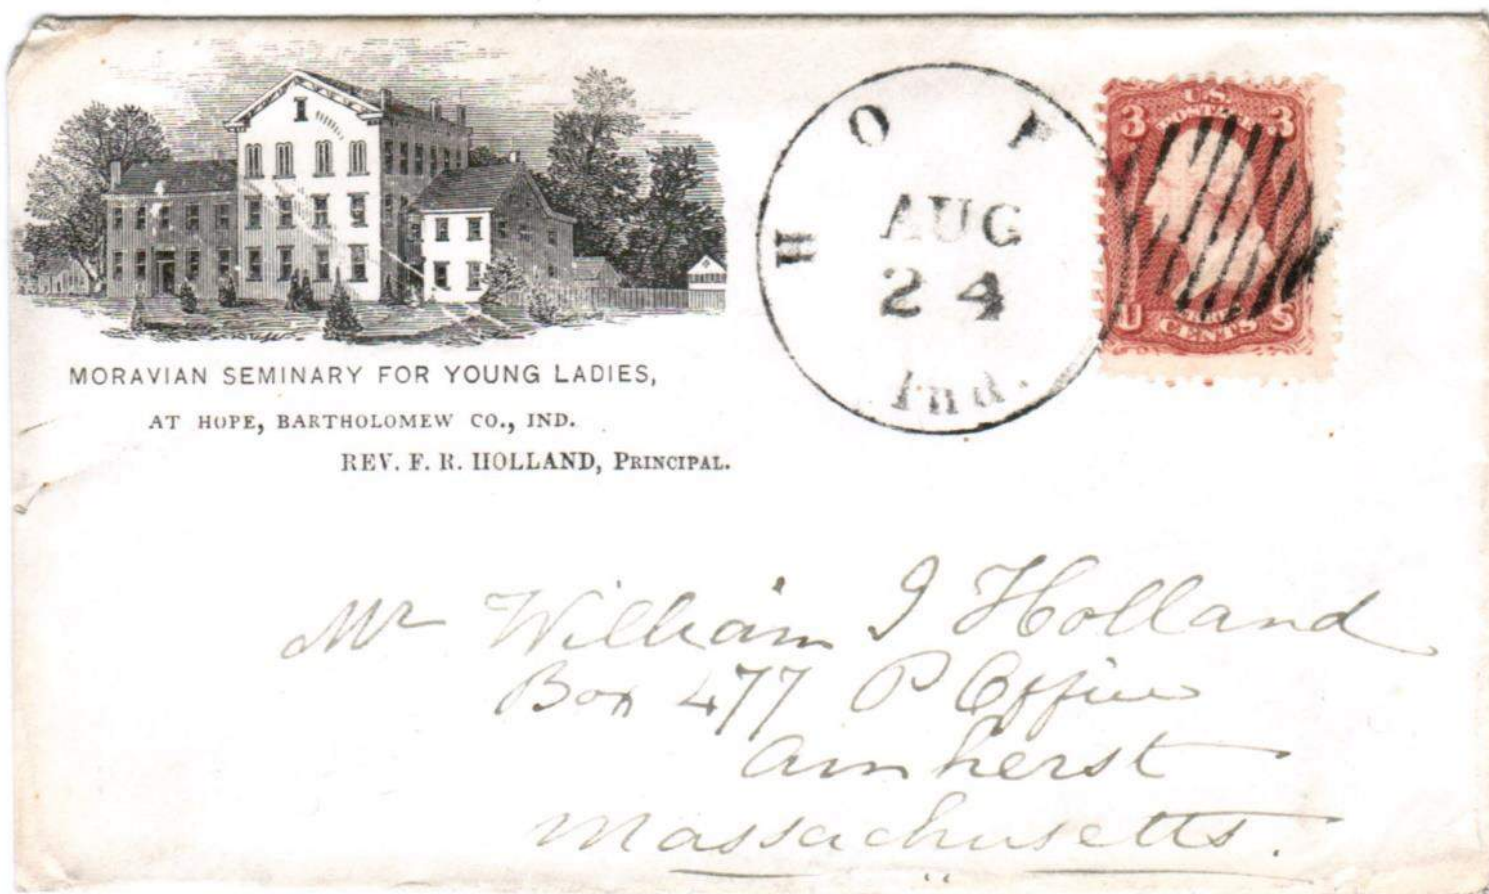 MORAVIAN SEMINARY FOR YOUNG LADIES,
AT HOPE, BARTHOLOMEW CO., IND.
REV. F. R. HOLLAND, PRINCIPAL.
HOP
AUG
24
Ind.
U.S.
3 3
U CENTS S
Mr William J Holland
Box 477 P Office
Amherst
Massachusetts.